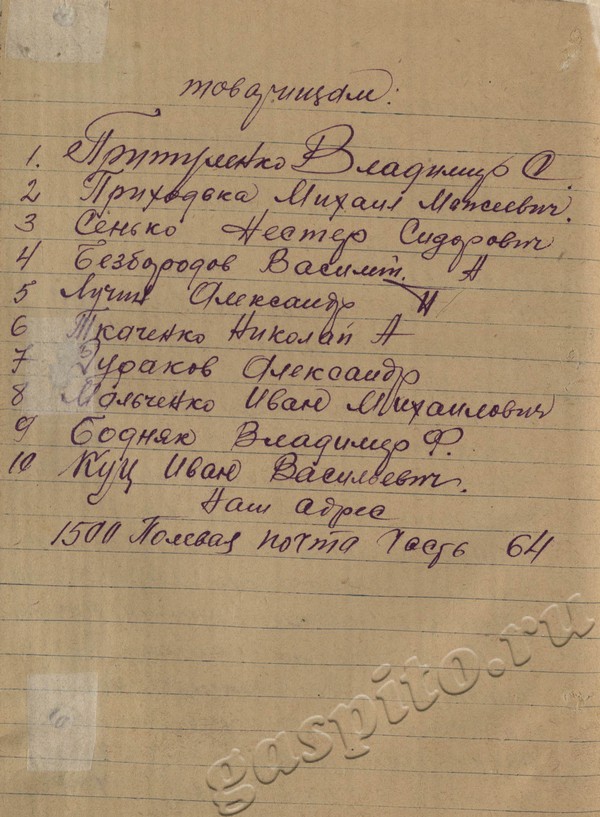 товарищам:
1. Притуленко Владимир С.
2 Приходька Михаил Моисеевич.
3 Сенько Нестер Сидорович
4 Безбородов Василий. А
5 Лучин Александр И
6 Ткаченко Николай А
7 Дудаков Александр
8 Мальченко Иван Михаилович
9 Бодняк Владимер Ф.
10 Куц Иван Васильевич.
Наш адрес
1500 Полевая почта Часть 64
gaspito.ru